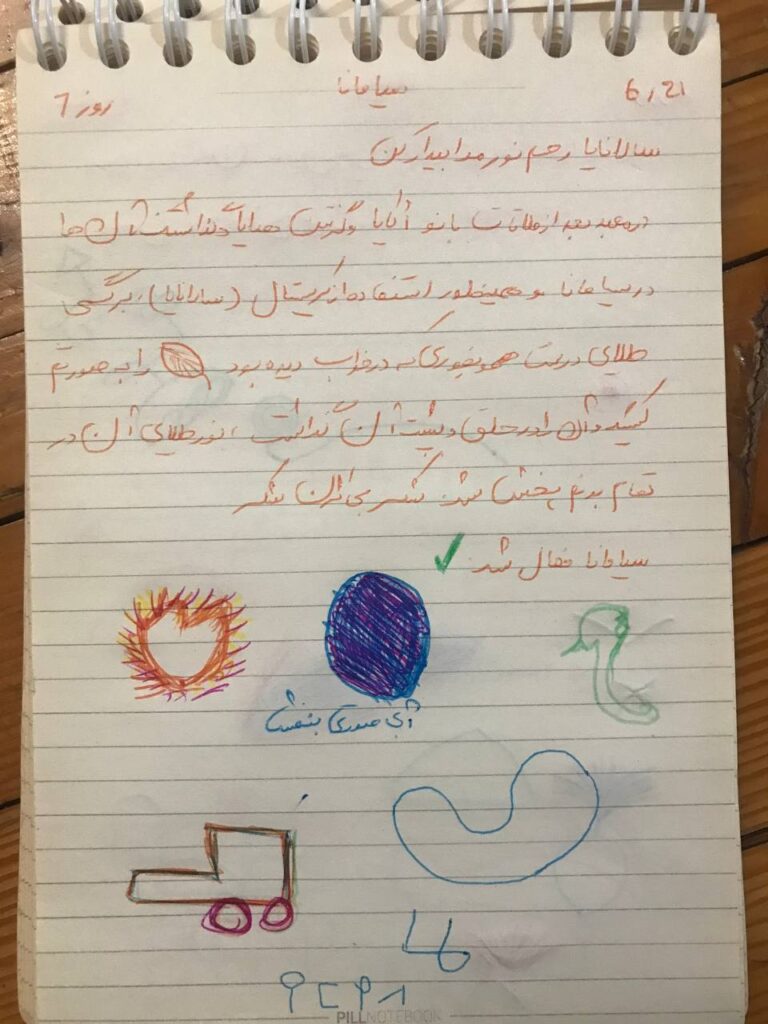 6,21 سیامانا روز 7
سالانایا رحم نور مدا بیدار کن
در معبد بعد از ملاقات بانو آکایا و گرفتن هدایا و گذاشتن آن ها
در سیامانا و همینطور استفاده از کریستال (سارانایا)، برگی
طلایی درست همونجوری که در خواب دیده بود را به صورتم
کشید و آن را در حلق و پشت آن گذاشت، نور طلایی آن در
تمام بدنم پخش شد. شکر بی کران شکر
سیامانا فعال شد ✓
آبی صورتی بنفش
PILLNOTEBOOK